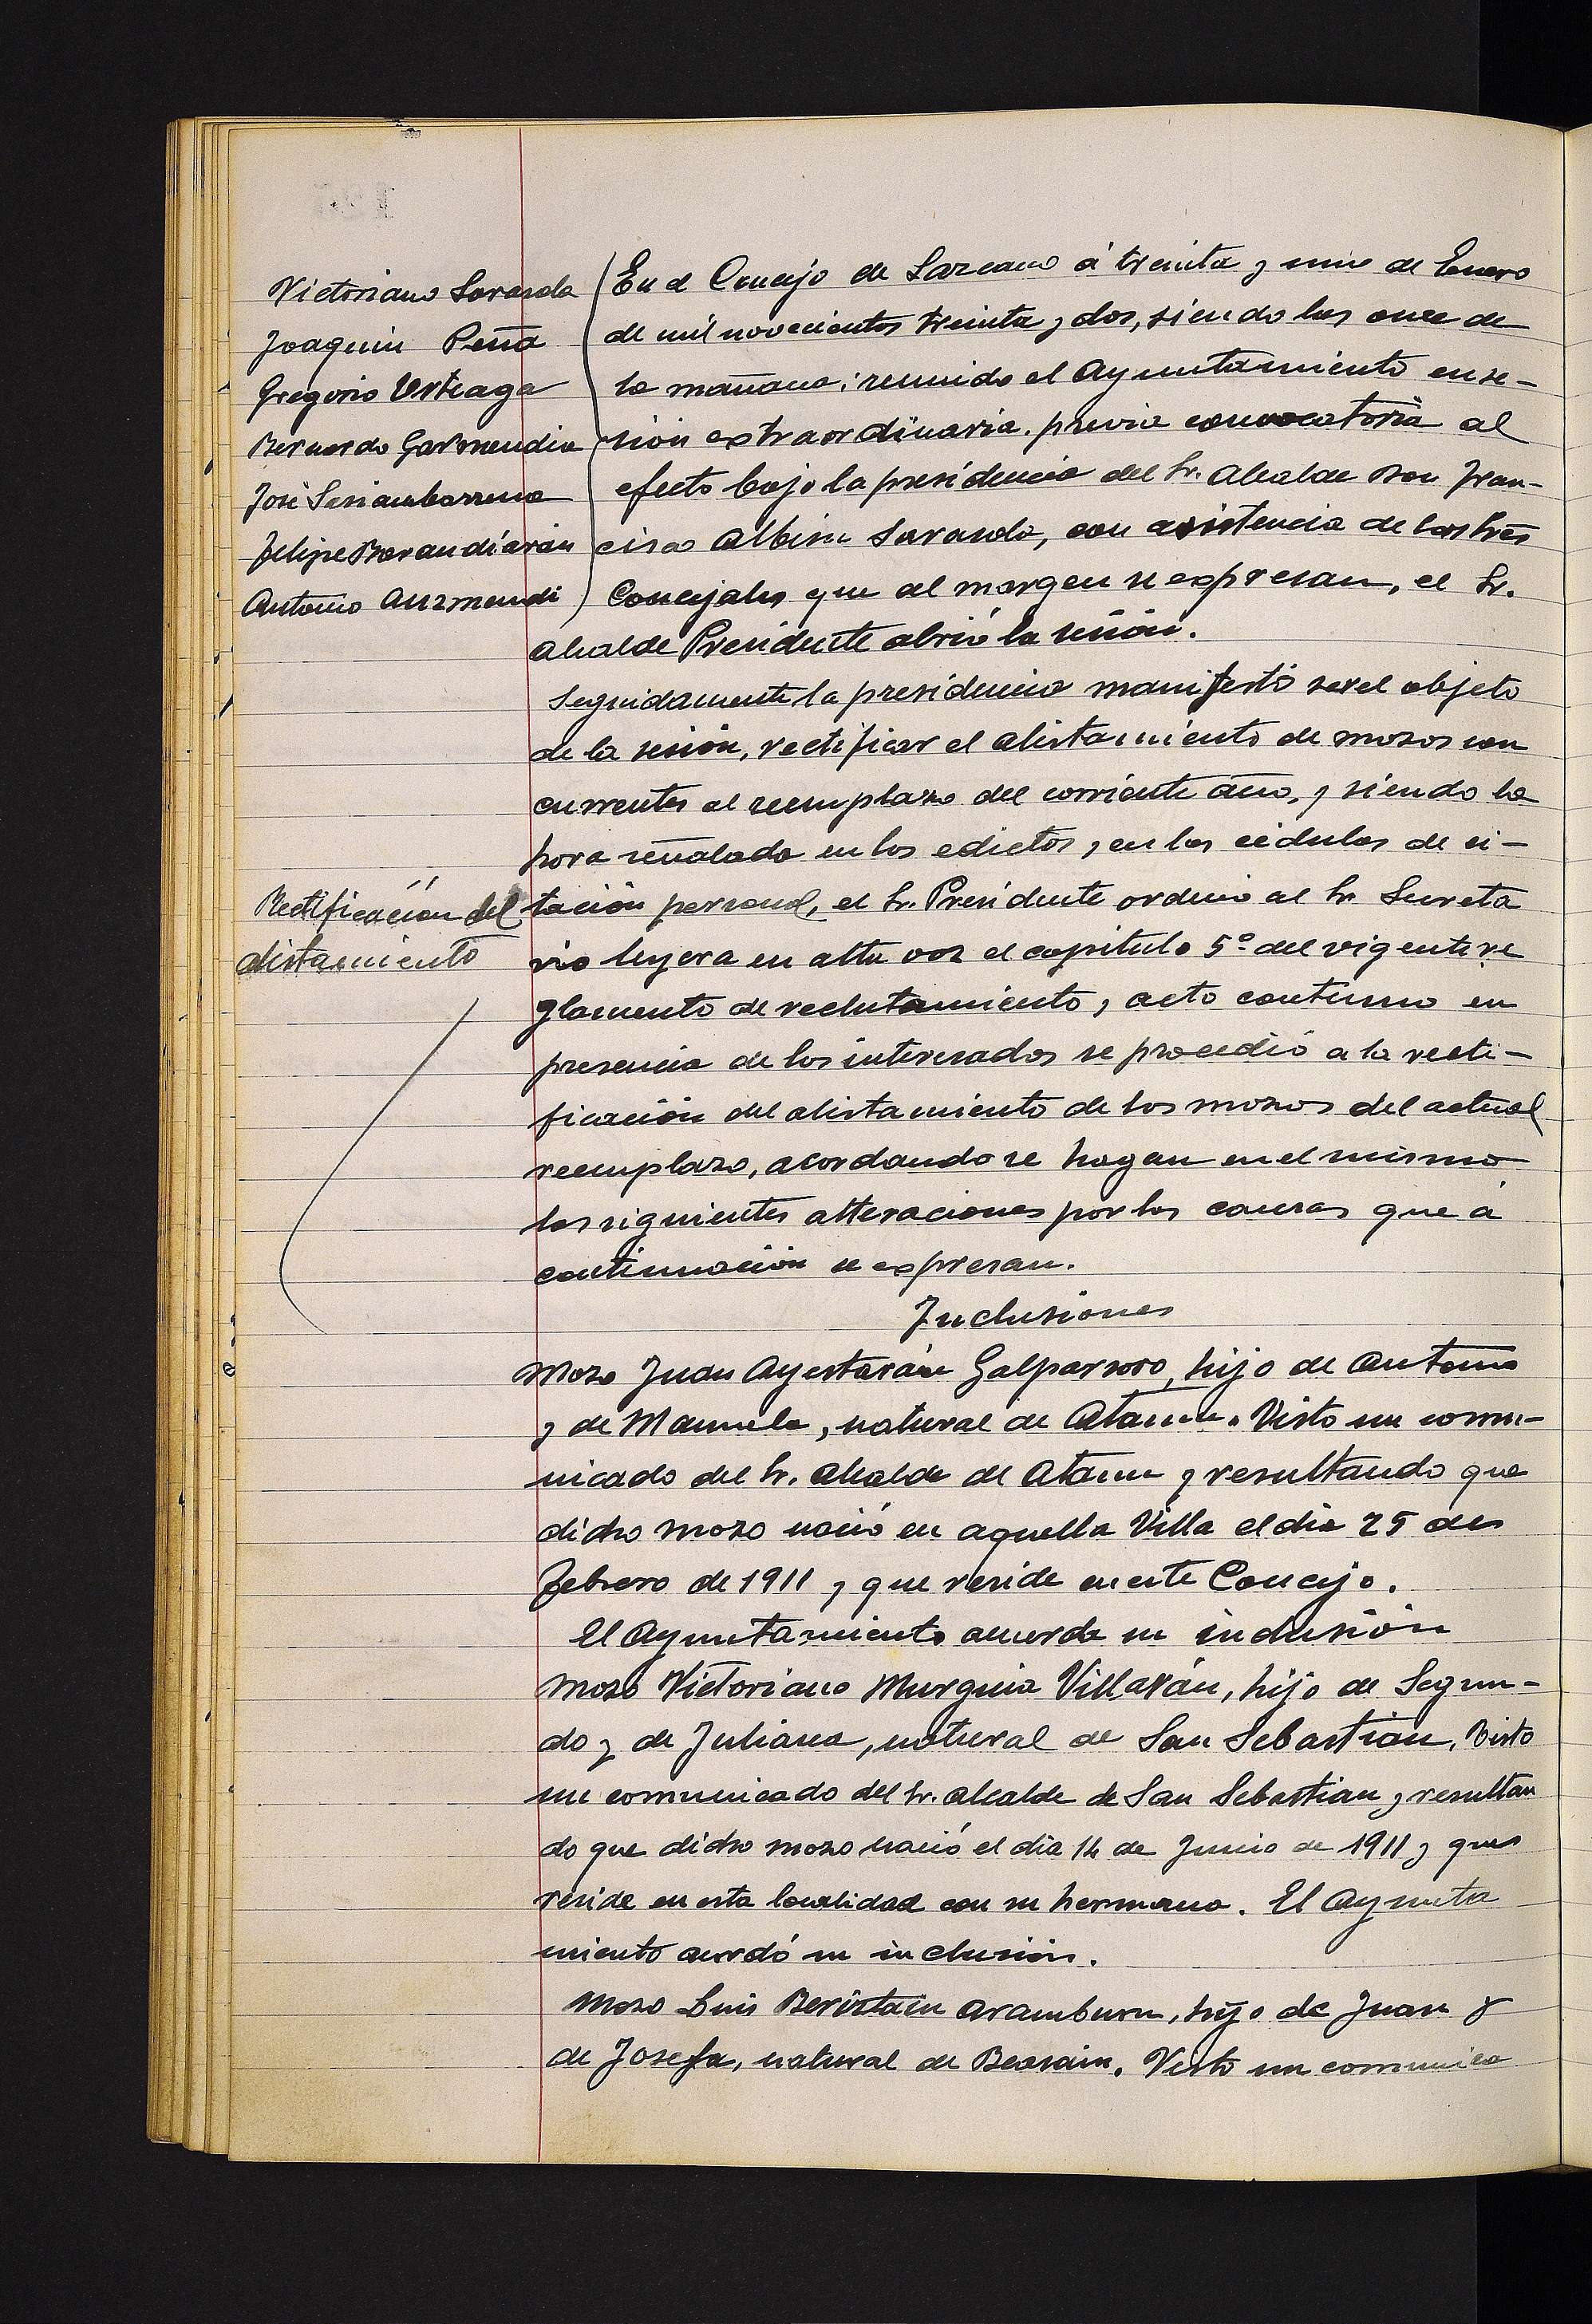 Victoriano Sarasola
Joaquin Peña
Gregorio Urteaga
Bernardo Garmendia
José Insiambarrena
Felipe Barandiarán
Antonio Auzmendi
En el Concejo de Lazcano á treinta y uno de Enero
de mil novecientos treinta y dos, siendo las once de
la mañana; reunido el Ayuntamiento en se-
sión extraordinaria. previa convocatoria al
efecto bajo la presidencia del Sr. Alcalde Don Fran-
cisco Albisu Sarasola, con asistencia de los tres
Concejales que al margen se expresan, el Sr.
Alcalde Presidente abrió la sesión.
Seguidamente la presidencia manifestó ser el objeto
de la sesión, rectificar el alistamiento de mozos con
currentes al reemplazo del corriente año, y siendo la
hora señalada en los edictos, en las cédulas de ci-
Rectificación del
alistamiento
tación personal, el Sr. Presidente ordenó al Sr. Secreta
rio leyera en alta voz el capitulo 5º del vigente re
glamento de reclutamiento, acto continuo en
presencia de los interesados se procedió a la recti-
ficación del alistamiento de los mozos del actual
reemplazo, acordando se hagan en el mismo
las siguientes alteraciones por las causas que á
continuación se expresan.
Inclusiones
Mozo Juan Ayestarán Galparsoro, hijo de Antonio
y de Manuela, natural de Ataun. Visto un comu-
nicado del Sr. Alcalde de Ataun y resultando que
dicho mozo nació en aquella Villa el dia 25 de
Febrero de 1911 y que reside en este Concejo.
El Ayuntamiento acuerda su inclusión
Mozo Victoriano Murguia Villarán, hijo de Segun-
do y de Juliana, natural de San Sebastián. Visto
un comunicado del Sr. Alcalde de San Sebastian y resultan
do que dicho mozo nació el dia 14 de Junio de 1911 y que
reside en esta localidad con su hermano. El Ayunta
miento acordó su inclusión.
Mozo Luis Beristain Aramburu, hijo de Juan y
de Josefa, natural de Beasain. Visto un comunica